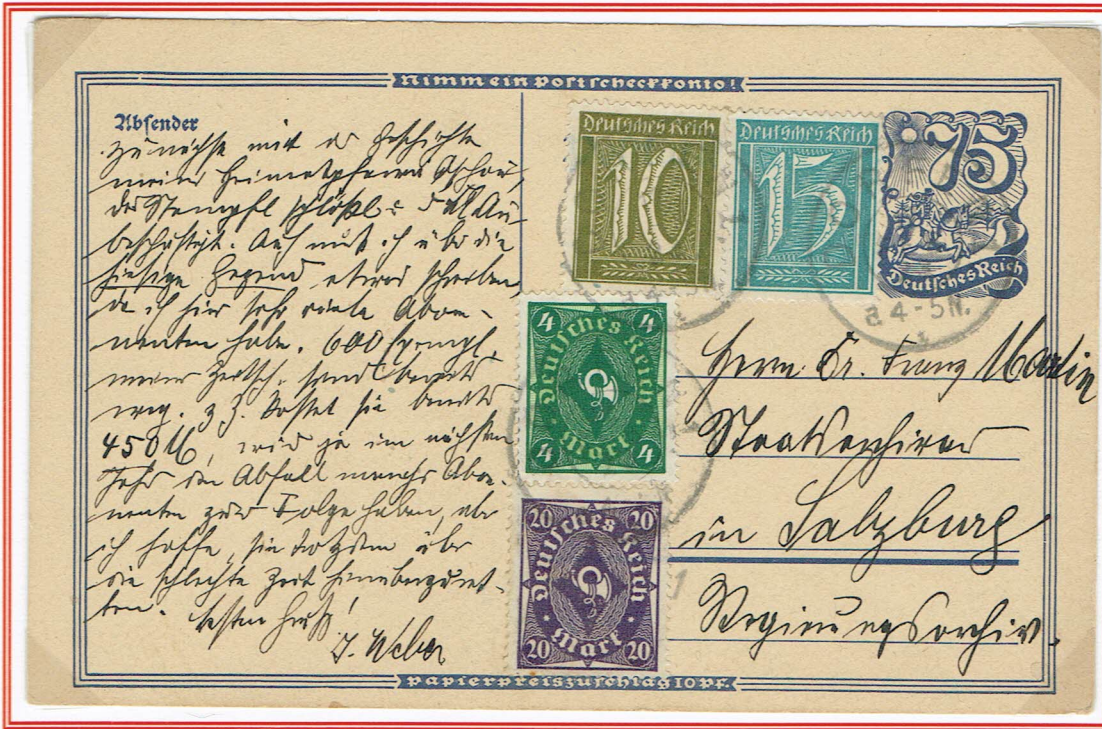 Nimm ein Postscheckkonto!
Absender
zunächst mit der Geschichte
meiner Heimatpfarrei
beschäftigt. Auch muß ich über die
hiesige Gegend etwas schreiben,
da ich hier sehr viele Abon-
nenten habe. 600 Exempl.
meiner Zeitsch. sind bereits
weg. z. Z. kostet sie bereits
450 M, wird ja im nächsten
Jahr den Abfall manchs Abon-
nenten zur Folge haben, aber
ich hoffe, sie trotzdem über
die schlechte Zeit hinüberzuret-
ten. Besten Gruß!
J. Weber
Deutsches Reich
10
Deutsches Reich
15
75
Deutsches Reich
8 4-5N.
4 4
Deutsches Reich
Mark
4 4
20 20
Deutsches Reich
Mark
20 20
Herrn Dr. Franz Martin
Staatsarchivar
in Salzburg
Regierungsarchiv.
Papierpreiszuschlag 10 Pf.